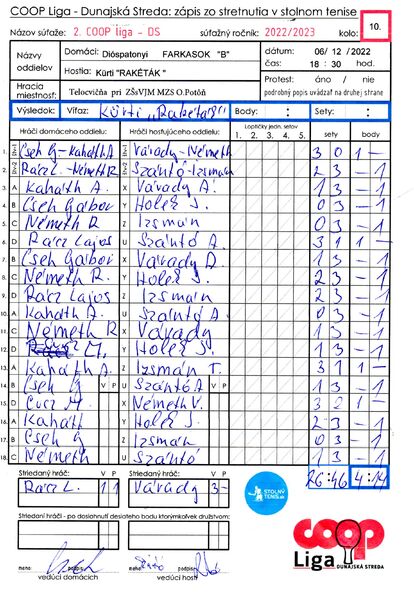 COOP Liga - Dunajská Streda: zápis zo stretnutia v stolnom tenise
Názov súťaže: 2. COOP liga - DS súťažný ročník: 2022/2023 kolo: 10.
Názvy oddielov
Domáci: Dióspatonyi FARKASOK "B"
Hostia: Kürti "RAKÉTÁK"
dátum: 06/12/2022
čas: 18 : 30 hod.
Hracia miestnosť: Telocvičňa pri ZŠsVJM MZS O.Potôň
Protest: áno / nie
podrobný popis uvádzať na druhej strane
Výsledok: Víťaz: Kürti "Rakéták" Body: : Sety: :
Hráči domáceho oddielu: Hráči hosťujúceho oddielu: Loptičky jedn. setov 1. 2. 3. 4. 5. sety body
1. Cseh G - Kanáth A Várady - Németh 3 0 1 -
2. Rácz L. - Németh R Szántó - Izsmán 2 3 - 1
3. A Kanáth A. X Várady A. 1 3 - 1
4. B Cseh Gábor Y Holeš J. 0 3 - 1
5. C Németh R Z Izsmán 0 3 - 1
6. D Rácz Lajos U Szántó A 3 1 1 -
7. B Cseh Gábor X Várady A 1 3 - 1
8. C Németh R. Y Holeš J. 2 3 - 1
9. D Rácz Lajos Z Izsmán 2 3 - 1
10. A Kanáth A. U Szántó A 0 3 - 1
11. C Németh R X Várady 1 3 - 1
12. D M. Y Holeš J. 1 3 - 1
13. A Kanáth A. Z Izsmán T. 3 1 1 -
14. B Cseh G V P U Szántó A V P 1 3 - 1
15. D M. X Németh V. 3 2 1 -
16. A Kanáth Y Holeš J 2 3 - 1
17. B Cseh G Z Izsmán 0 3 - 1
18. C Németh U Szántó 1 3 - 1
Striedaný hráč: V P Striedaný hráč: V P 26:46 4:14
Rácz L. 1 1 Várady 3 -
STOLNÝ TENIS
Striedaní hráči - po dosiahnutí desiateho bodu ktorýmkoľvek družstvom:
meno podpis meno podpis
vedúci domácich vedúci hostí
COOP
Liga DUNAJSKÁ STREDA